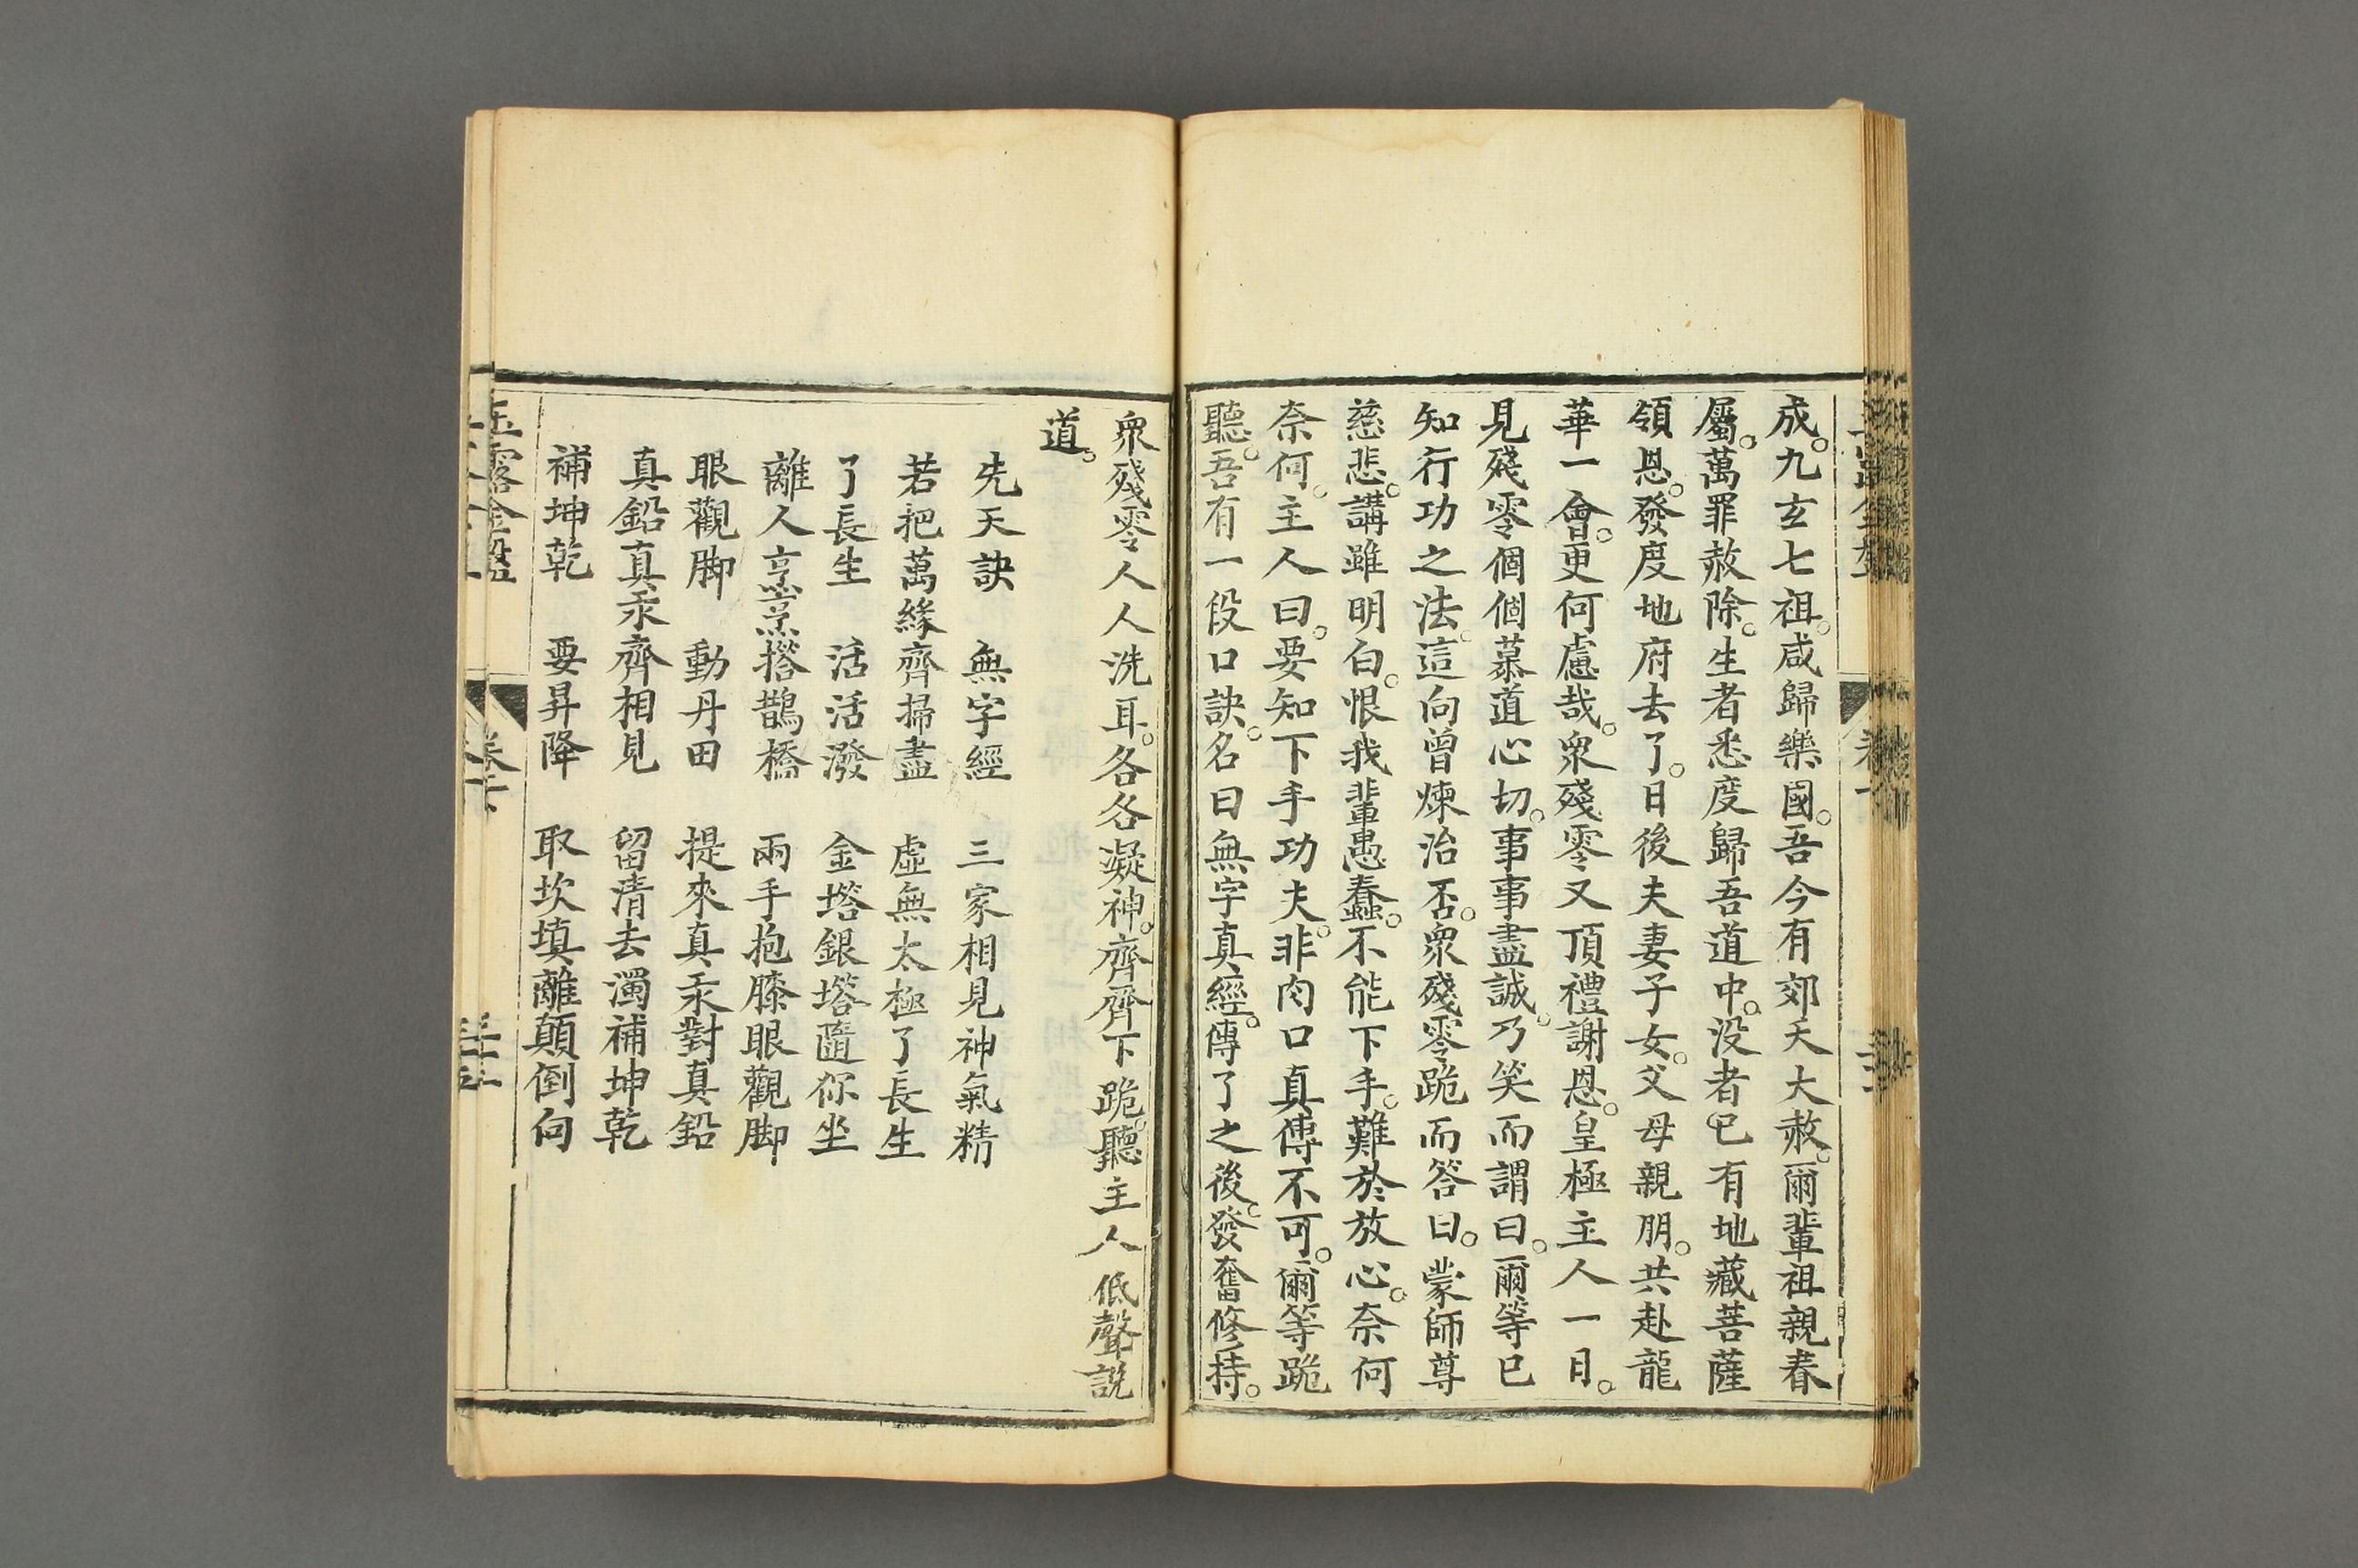 成。九玄七祖。咸歸樂國。吾今有郊天大赦。爾輩祖親眷
屬。萬罪赦除。生者悉度歸吾道中。没者已有地藏菩薩
領恩。發度地府去了。日後夫妻子女。父母親朋。共赴龍
華一會。更何慮哉。衆殘零又頂禮謝恩。皇極主人一日。
見殘零個個慕道心切。事事盡誠。乃笑而謂曰。爾等已
知行功之法。這向曾煉治否。衆殘零跪而答曰。蒙師尊
慈悲。講雖明白。恨我輩愚蠢。不能下手。難於放心。奈何
奈何。主人曰。要知下手功夫。非肉口真傳不可。爾等跪
聽。吾有一段口訣。名曰無字真經。傳了之後。發奮修持。
衆殘零人人洗耳。各各凝神。齊齊下跪。聽主人低聲說
道。
先天訣　無字經　三家相見神氣精
若把萬緣齊掃盡　虛無太極了長生
了長生　活活潑　金塔銀塔隨你坐
離人烹烹搭鵲橋　兩手抱膝眼觀脚
眼觀脚　動丹田　提來真汞對真鉛
真鉛真汞齊相見　留清去濁補坤乾
補坤乾　要昇降　取坎填離顛倒向
玉露金盤
卷下